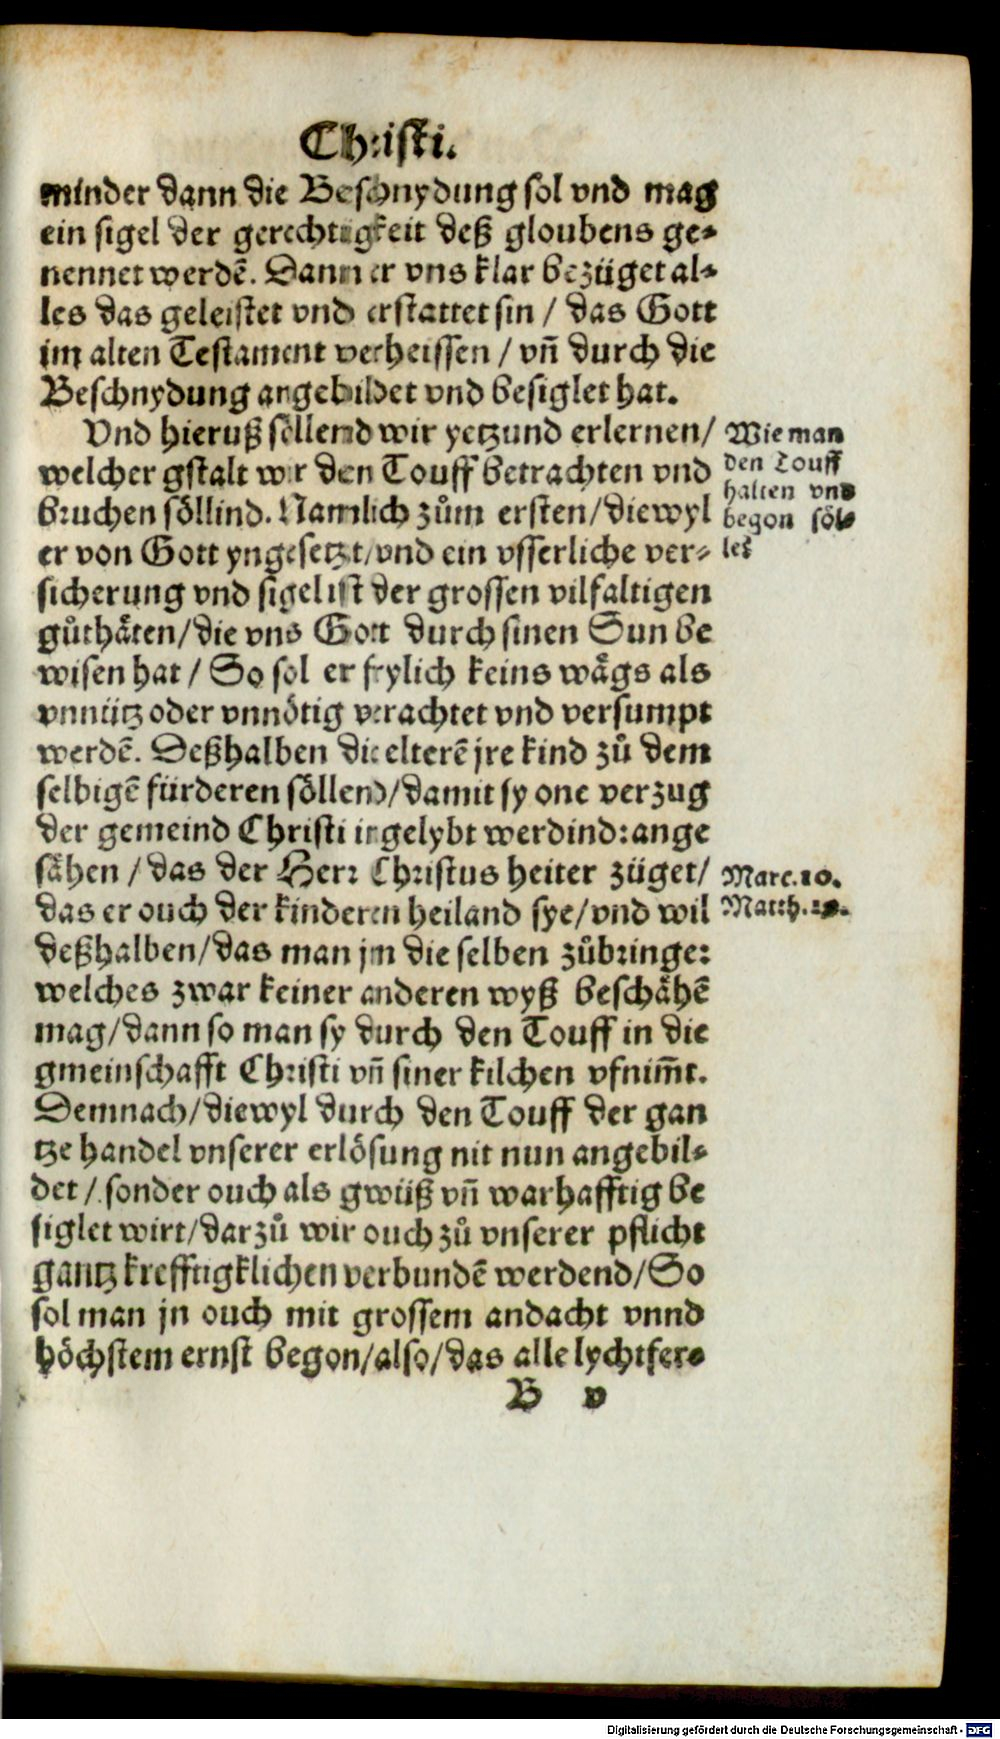 Christi.
minder dann die Beschnydung sol vnd mag
ein sigel der gerechtigkeit deß gloubens ge-
nennet werdẽ. Dann er vns klar bezüget al-
les das geleistet vnd erstattet sin / das Gott
im alten Testament verheissen / vñ durch die
Beschnydung angebildet vnd besiglet hat.
Vnd hieruß söllend wir yetzund erlernen/
welcher gstalt wir den Touff betrachten vnd
bruchen söllind. Namlich zům ersten/diewyl
er von Gott yngesetzt/vnd ein vsserliche ver-
sicherung vnd sigel ist der grossen vilfaltigen
gůthaͤten/die vns Gott durch sinen Sun be
wisen hat / So sol er frylich keins waͤgs als
vnnütz oder vnnoͤtig verachtet vnd versumpt
werdẽ. Deßhalben die elterẽ jre kind zů dem
selbigẽ fürderen soͤllend/damit sy one verzug
der gemeind Christi ingelybt werdind: ange
saͤhen / das der Herr Christus heiter züget/
das er ouch der kinderen heiland sye/vnd wil
deßhalben/das man jm die selben zůbringe:
welches zwar keiner anderen wyß beschaͤhẽ
mag/dann so man sy durch den Touff in die
gmeinschafft Christi vñ siner kilchen vfnim̃t.
Demnach/diewyl durch den Touff der gan
tze handel vnserer erloͤsung nit nun angebil-
det / sonder ouch als gwüß vñ warhafftig be
siglet wirt/darzů wir ouch zů vnserer pflicht
gantz krefftigklichen verbundẽ werdend/So
sol man jn ouch mit grossem andacht vnnd
hoͤchstem ernst begon/also/das alle lychtfer-
B v
Wie man
den Touff
halten vnd
begon söl-
le
Marc.10.
Matth.
Digitalisierung gefördert durch die Deutsche Forschungsgemeinschaft - DFG